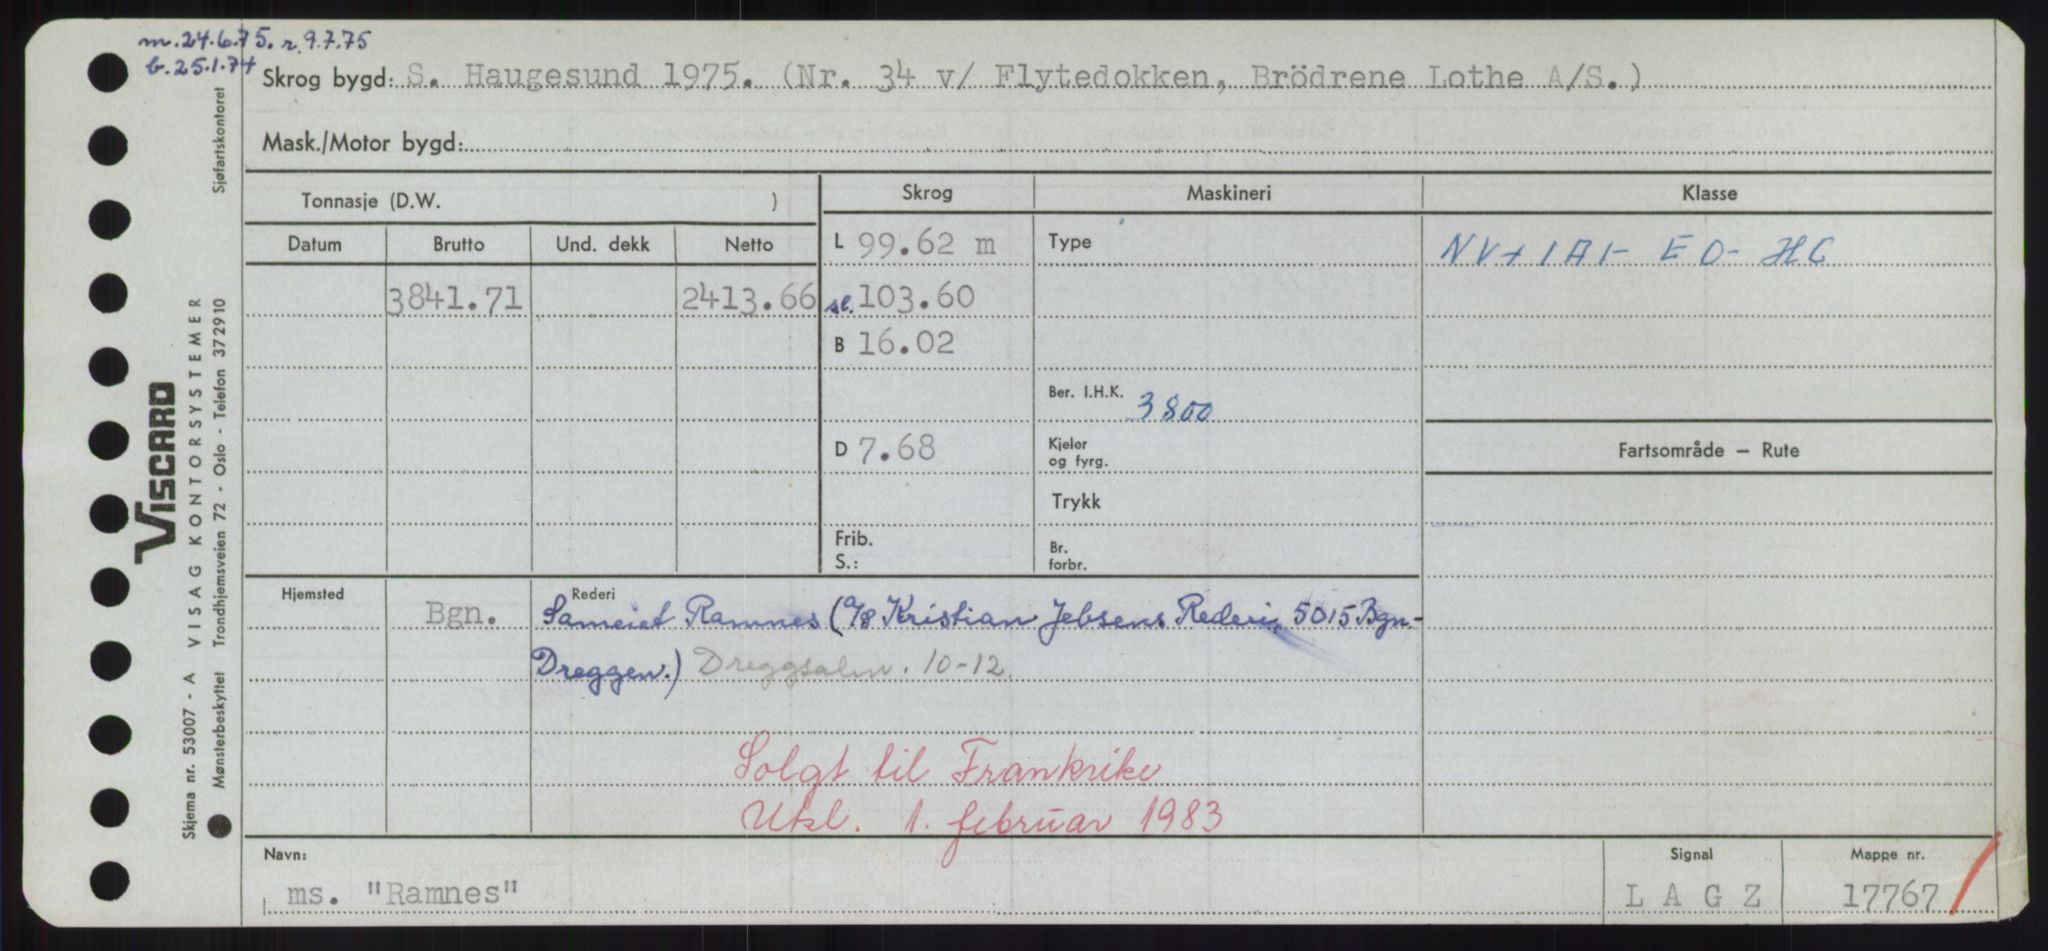 m.24.6.75. r.9.7.75
b.25.1.74
Skrog bygd: S. Haugesund 1975. (Nr. 34 v/ Flytedokken, Brödrene Lothe A/S.)
Mask./Motor bygd:
Tonnasje (D.W. )
Skrog
Maskineri
Klasse
Datum Brutto Und. dekk Netto
L 99.62 m
Type
NV+ 1A1- EO- HC
3841.71 2413.66
sl. 103.60
B 16.02
Ber. I.H.K. 3800
D 7.68
Kjeler
og fyrg.
Fartsområde — Rute
Trykk
Frib.
S.:
Br.
forbr.
Hjemsted
Bgn.
Rederi
Sameiet Ramnes (A/S Kristian Jebsens Rederi, 5015 Bgn.-
Dreggen.) Dreggsalm. 10-12.
Solgt til Frankrike
Utkl. 1. februar 1983
Navn:
ms. "Ramnes"
Signal
L A G Z
Mappe nr.
17767
VISCARD
Skjema nr. 53007 - A VISAG KONTORSYSTEMER
Mønsterbeskyttet Trondhjemsveien 72 - Oslo - Telefon 372910 Sjøfartskontoret